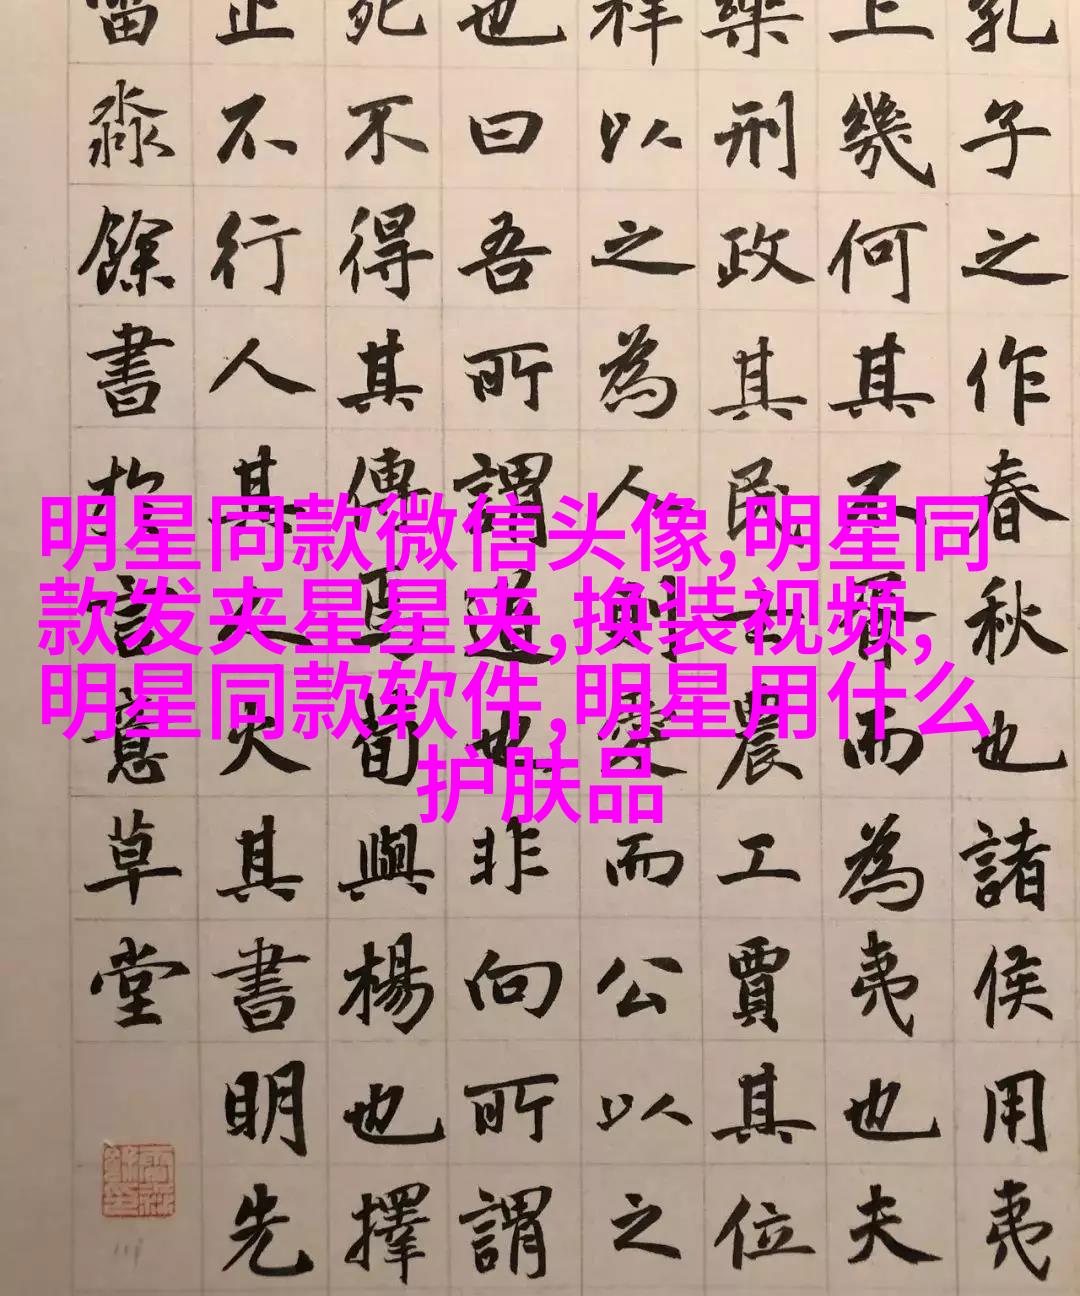 明星同款微信头像,明星同
款发夹星星夹,换装视频,
明星同款软件,明星用什么
护肤品
孔子之作春秋也諸侯用夷
上幾何其不胥而為夷也夫
樂刑政其民士農工賈其位
祥以之為人則愛而公以之
也曰吾所謂道也非向所謂
死不得其傳焉荀與楊也擇
止不行人其人火其書明先
淼餘書於詩意草堂